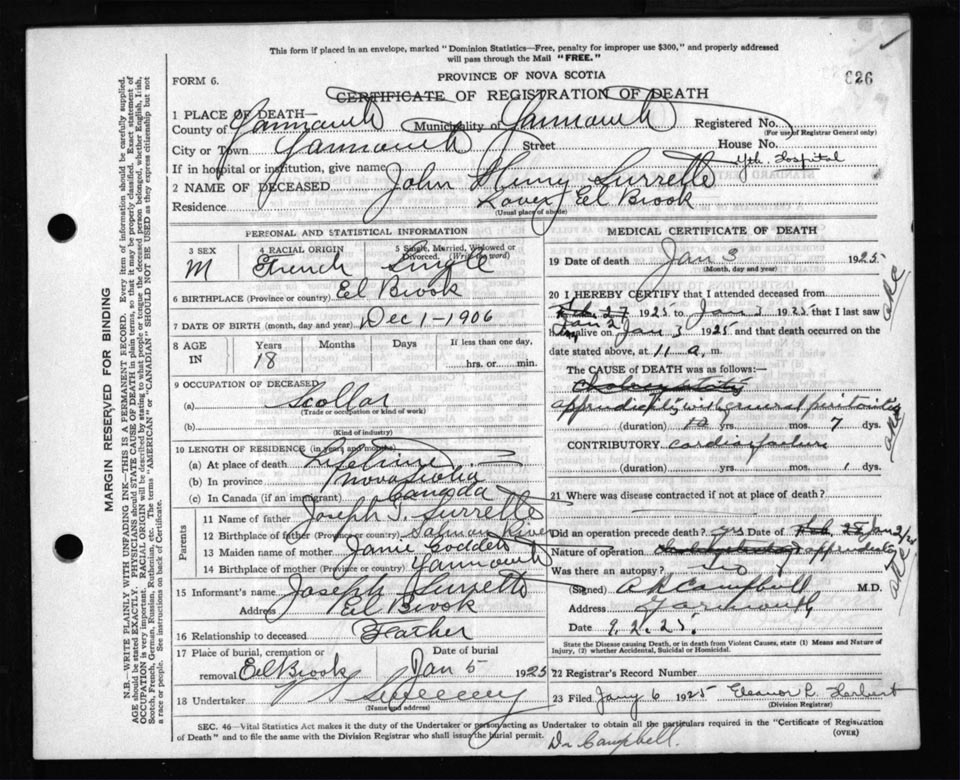 This form if placed in an envelope, marked "Dominion Statistics—Free, penalty for improper use $300," and properly addressed
will pass through the Mail "FREE."
FORM 6.
PROVINCE OF NOVA SCOTIA
626
CERTIFICATE OF REGISTRATION OF DEATH
1 PLACE OF DEATH—
County of Yarmouth Municipality of Yarmouth Registered No.
(For use of Registrar General only)
City or Town Yarmouth Street House No.
If in hospital or institution, give name Yth Hospital
2 NAME OF DECEASED John Henry Surrette
Residence Lower Eel Brook
(Usual place of abode)
PERSONAL AND STATISTICAL INFORMATION
3 SEX 4 RACIAL ORIGIN 5 Single, Married, Widowed or Divorced. (Write the word)
M French Single
6 BIRTHPLACE (Province or country) Eel Brook
7 DATE OF BIRTH (month, day and year) Dec 1-1906
8 AGE IN Years Months Days If less than one day,
18 hrs. or min.
9 OCCUPATION OF DECEASED
(a) Scollar
(Trade or occupation or kind of work)
(b)
(Kind of industry)
10 LENGTH OF RESIDENCE (in years and months)
(a) At place of death Lifetime
(b) In province Nova Scotia
(c) In Canada (if an immigrant) Canada
Parents
11 Name of father Joseph T. Surrette
12 Birthplace of father (Province or country) Salmon River
13 Maiden name of mother Janie Goddett
14 Birthplace of mother (Province or country) Yarmouth
15 Informant's name Joseph Surrette
Address Eel Brook
16 Relationship to deceased Father
17 Place of burial, cremation or Date of burial
removal Eel Brook Jan 5 1925
18 Undertaker Sweeney
(Name and address)
MEDICAL CERTIFICATE OF DEATH
19 Date of death Jan 3 1925
(Month, day and year)
20 I HEREBY CERTIFY that I attended deceased from
Jan 2 1925 to Jan 3 1925 that I last saw
h alive on Jan 3 1925 and that death occurred on
date stated above, at 11 a. m.
The CAUSE OF DEATH was as follows:—
appendicitis with general peritonitis
(duration) yrs. mos. 7 dys.
CONTRIBUTORY cardiac failure
(duration) yrs. mos. 1 dys.
21 Where was disease contracted if not at place of death?
Did an operation precede death? yes Date of Jan 2/25
Nature of operation appendectomy
Was there an autopsy? no
(Signed) A R Campbell M.D.
Address Yarmouth
Date 9.2.25.
State the Disease causing Death, or in death from Violent Causes, state (1) Means and Nature of
Injury, (2) whether Accidental, Suicidal or Homicidal.
22 Registrar's Record Number
23 Filed Jany 6 1925 Eleanor L. Herbert
(Division Registrar)
SEC. 46—Vital Statistics Act makes it the duty of the Undertaker or person acting as Undertaker to obtain all the particulars required in the "Certificate of Registration
of Death" and to file the same with the Division Registrar who shall issue the burial permit.
(OVER)
Dr Campbell.
MARGIN RESERVED FOR BINDING
N.B.—WRITE PLAINLY WITH UNFADING INK—THIS IS A PERMANENT RECORD. Every item of information should be carefully supplied.
AGE should be stated EXACTLY. PHYSICIANS should STATE CAUSE OF DEATH in plain terms, so that it may be properly classified. Exact statement of
OCCUPATION is very important. RACIAL ORIGIN will be described by stating to what people or tongue the deceased person belonged, whether English, Irish,
Scotch, French, German, Russian, Ruthenian, etc. The terms "AMERICAN" or "CANADIAN" SHOULD NOT BE USED as they express citizenship but not
a race or people. See instructions on back of Certificate.